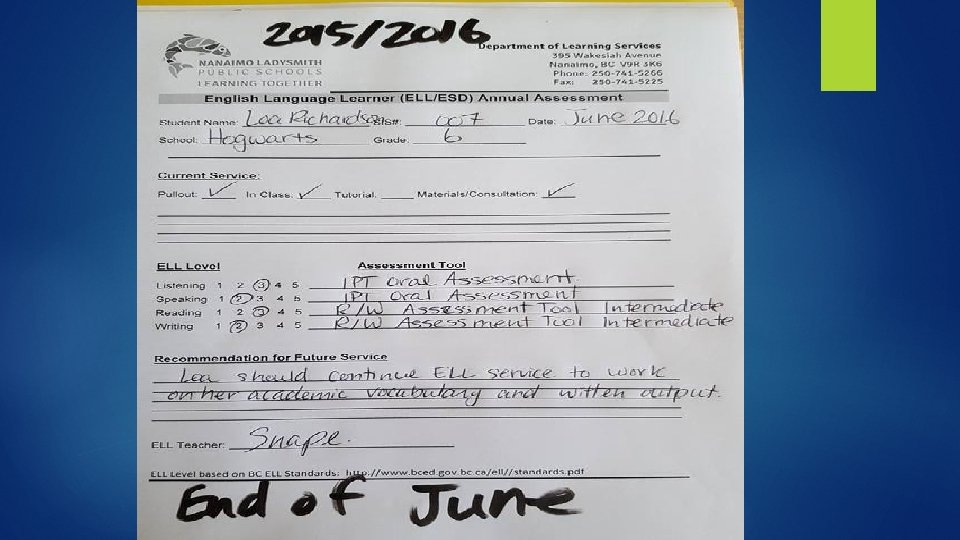 2015/2016
Department of Learning Services
395 Wakesiah Avenue
Nanaimo, BC V9R 3K6
Phone: 250-741-5266
Fax: 250-741-5225
NANAIMO LADYSMITH
PUBLIC SCHOOLS
LEARNING TOGETHER
English Language Learner (ELL/ESD) Annual Assessment
Student Name: Lea Richardson #: 007 Date: June 2016
School: Hogwarts Grade: 6
Current Service:
Pullout: ✓ In Class: ✓ Tutorial: Materials/Consultation: ✓
ELL Level Assessment Tool
Listening 1 2 3 4 5 IPT Oral Assessment
Speaking 1 2 3 4 5 IPT Oral Assessment
Reading 1 2 3 4 5 R/W Assessment Tool Intermediate
Writing 1 2 3 4 5 R/W Assessment Tool Intermediate
Recommendation for Future Service
Lea should continue ELL service to work
on her academic vocabulary and written output.
ELL Teacher: Snape.
ELL Level based on BC ELL Standards: http://www.bced.gov.bc.ca/ell//standards.pdf
End of June